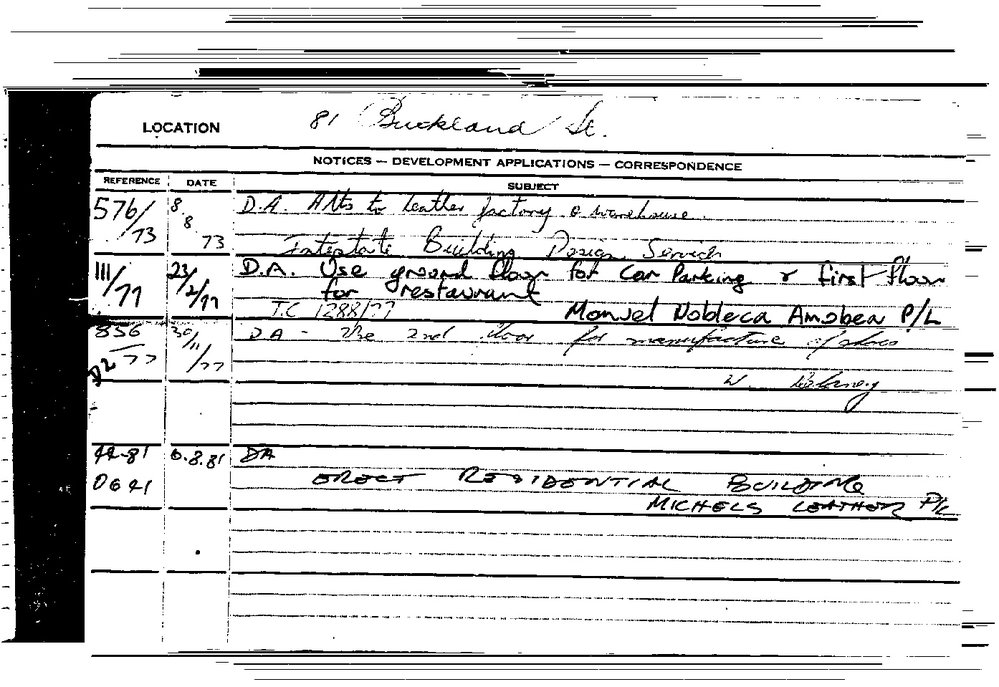 LOCATION 81 Buckland St.
NOTICES — DEVELOPMENT APPLICATIONS — CORRESPONDENCE
REFERENCE DATE SUBJECT
576/73 8/8/73 D.A. Alts to leather factory & warehouse.
Interstate Building Design Service
111/77 23/2/77 D.A. Use ground floor for Car Parking & first floor
for restaurant
T.C 1288/77 Manuel Nobleca Amobea P/L
856 30/11/77 DA - The 2nd floor for manufacture of shoes
D2 77 W.
44-81 6.8.81 DA
0641 ERECT RESIDENTIAL BUILDING
MICHELS LEATHER P/L